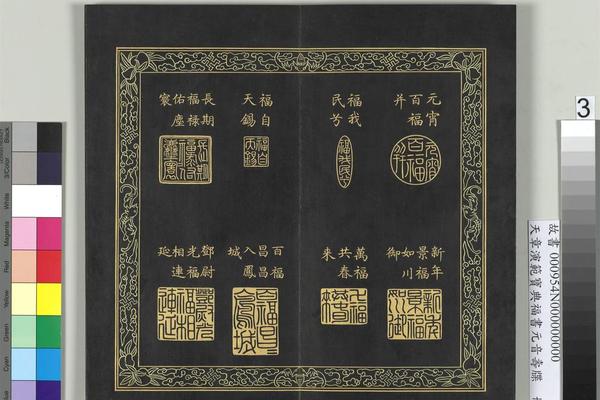 元宵
百福
并
福我
民兮
福自
天錫
長期
福祿
佑座
寰
新年
景福
如川
御
萬福
共春
来
百福
昌昌
八鳳
城
鄧尉
光福
相連
延
3
故書 000954N000000000
天章演範寶典福書元音壽牒
Black
3/Color
White
Magenta
Red
Yellow
Green
Cyan
Blue